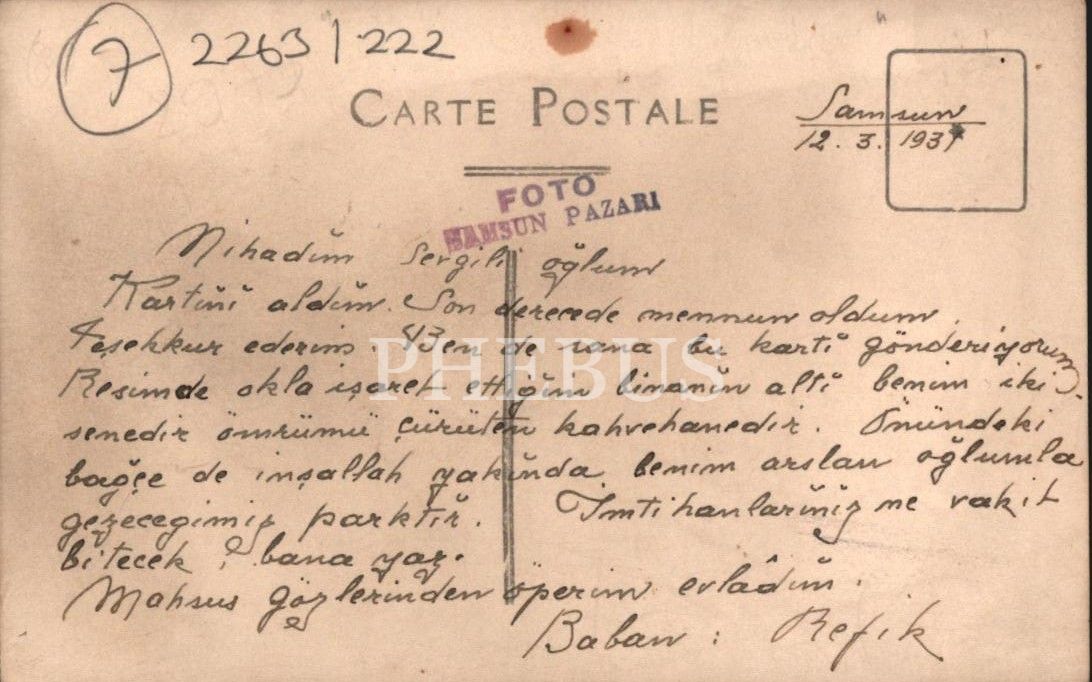 7 2263/222
CARTE POSTALE
Samsun
12.3.1937
FOTO
SAMSUN PAZARI
Nihadım sevgili oğlum
Kartını aldım. Son derecede memnun oldum.
Teşekkur ederim. Ben de sana bu kartı gönderiyorum.
Resimde okla işaret ettiğim binanın altı benim iki
senedir ömrümü çürüten kahvehanedir. Önündeki
bağçe de inşallah yakında benim arslan oğlumla
gezeceğimiz parktır. İmtihanlarınız ne vakit
bitecek? bana yaz.
Mahsus gözlerinden öperim evlâdım.
Baban: Refik
PHEBUS